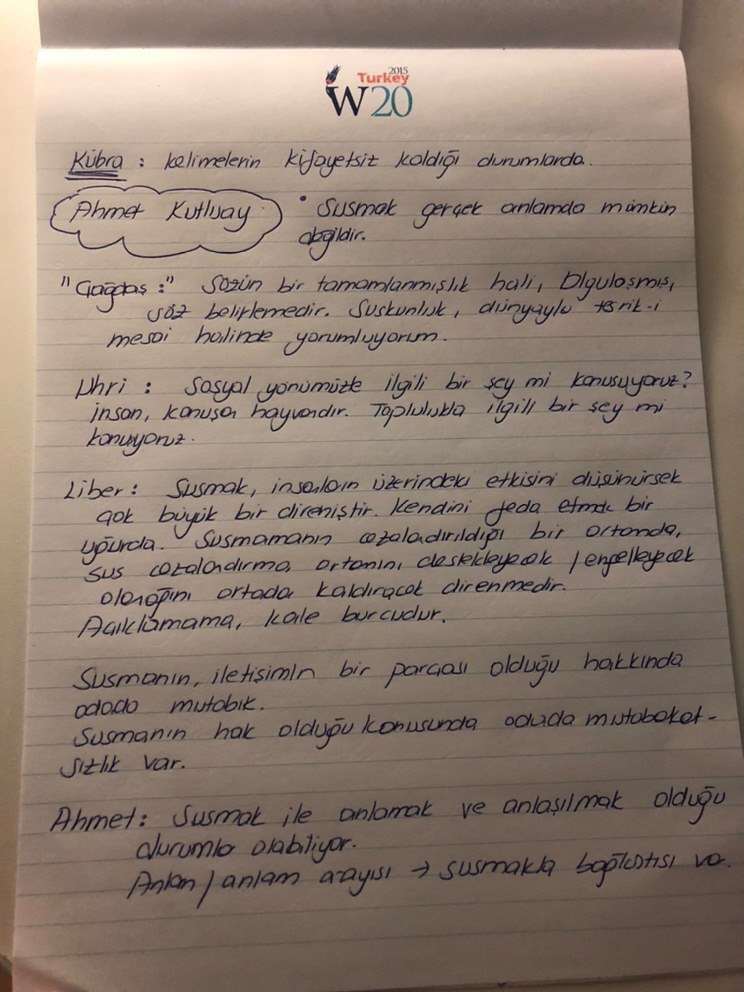 2015
Turkey
W20
Kübra : kelimelerin kifayetsiz kaldığı durumlarda.
Ahmet Kutluay • Susmak gerçek anlamda mümkün
değildir.
"Çağdaş :" Sözün bir tamamlanmışlık hali, Olgulaşmış,
söz belirlemedir. Suskunluk, dünyayla teşrik-i
mesai halinde yorumluyorum.
Uhri : Sosyal yönümüzle ilgili bir şey mi konuşuyoruz?
insan, konuşan hayvandır. Toplulukla ilgili bir şey mi
konuyoruz.
Liber : Susmak, insanların üzerindeki etkisini düşünürsek
çok büyük bir direniştir. Kendini feda etmek bir
uğurda. Susmamanın cezaladırıldığı bir ortamda,
sus cezalandırma ortamını destekleyecek / engelleyecek
olanağını ortada kaldıracak direnmedir.
Açıklamama, kale burcudur.
Susmanın, iletişimin bir parçası olduğu hakkında
odada mutabık.
Susmanın hak olduğu konusunda odada mutabakat-
sızlık var.
Ahmet : Susmak ile anlamak ve anlaşılmak olduğu
durumla olabiliyor.
Anlam / anlam arayışı → susmakla bağlantısı var.